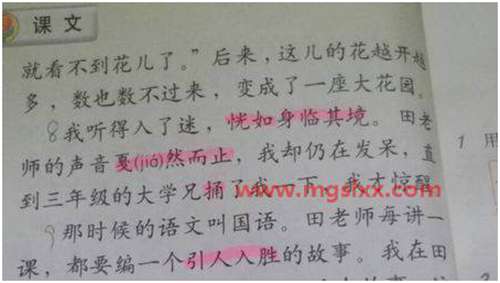 课文
就看不到花儿了。”后来，这儿的花越开越
多，数也数不过来，变成了一座大花园。
8我听得入了迷，恍如身临其境。田老
师的声音戛(jiá)然而止，我却仍在发呆，直
到三年级的大学兄捅了我一下，我才惊醒
www.mgsfxx.com
9那时候的语文叫国语。田老师每讲一
课，都要编一个引人入胜的故事。我在田
1 用